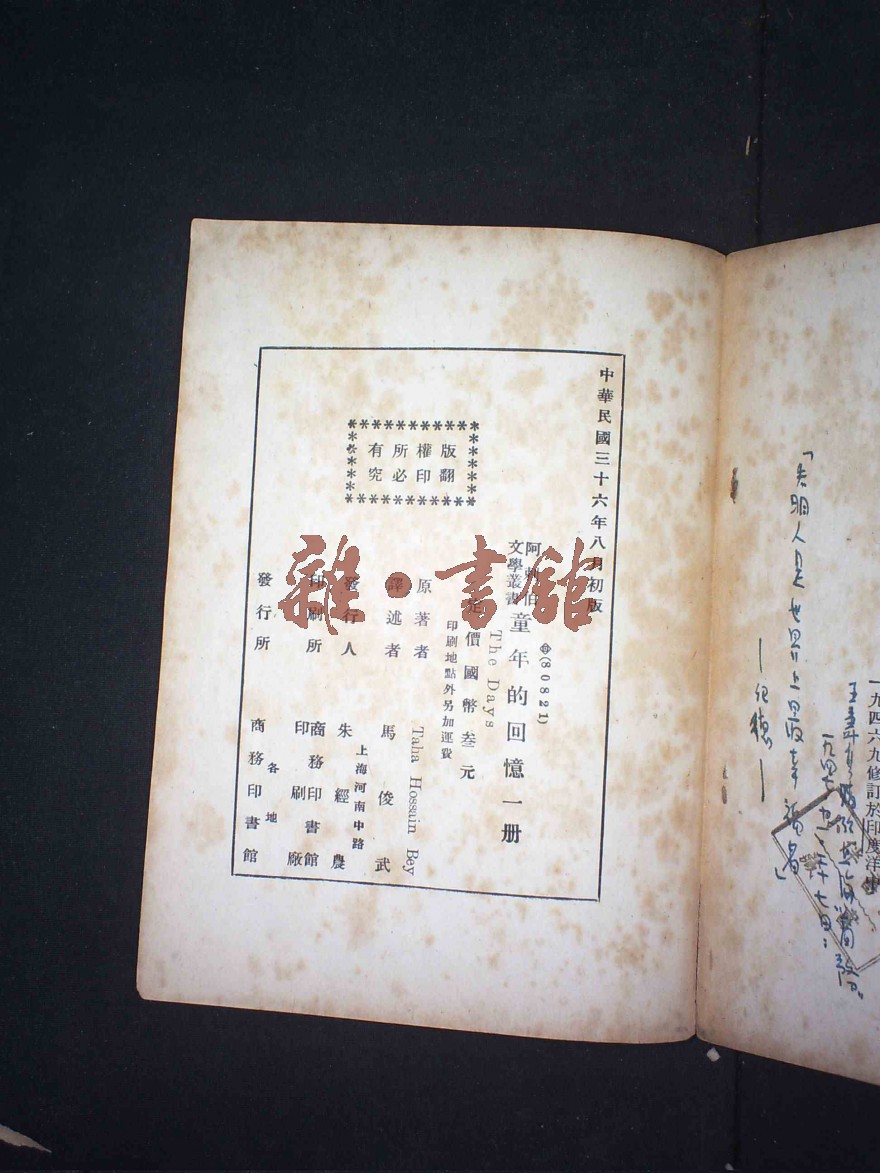 中華民國三十六年八月初版
版權所有
翻印必究
(80821)
阿剌伯
文學叢書
童年的回憶一册
The Days
定價國幣叁元
印刷地點外另加運費
原著者 Taha Hossain Bey
譯述者 馬俊武
發行人 朱經農
上海河南中路
印刷所 商務印書館
印刷廠
發行所 各地
商務印書館
雜·書館
「失明人是世界上最幸福者」
一九四六九修訂於印度洋